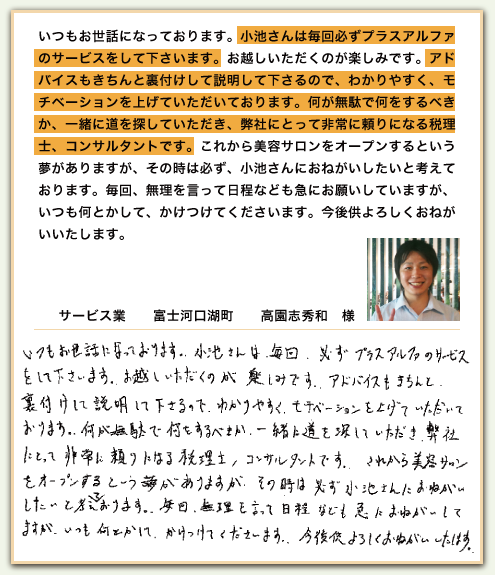 いつもお世話になっております。小池さんは毎回必ずプラスアルファ
のサービスをして下さいます。お越しいただくのが楽しみです。アド
バイスもきちんと裏付けして説明して下さるので、わかりやすく、モ
チベーションを上げていただいております。何が無駄で何をするべき
か、一緒に道を探していただき、弊社にとって非常に頼りになる税理
士、コンサルタントです。これから美容サロンをオープンするという
夢がありますが、その時は必ず、小池さんにおねがいしたいと考えて
おります。毎回、無理を言って日程なども急にお願いしていますが、
いつも何とかして、かけつけてくださいます。今後供よろしくおねが
いいたします。
サービス業　富士河口湖町　高園志秀和　様
いつもお世話になっております。小池さんは、毎回、必ずプラスアルファのサービス
をして下さいます。お越しいただくのが楽しみです。アドバイスもきちんと
裏付けして説明して下さるので、わかりやすく、モチベーションを上げていただいて
おります。何が無駄で何をするべきか、一緒に道を探していただき、弊社
にとって非常に頼りになる税理士、コンサルタントです。これから美容サロン
をオープンするという夢がありますが、その時は必ず小池さんにおねがい
したいと考えております。毎回、無理を言って日程なども急におねがいして
ますが、いつも何とかして、かけつけてくださいます。今後供よろしくおねがいいたします。